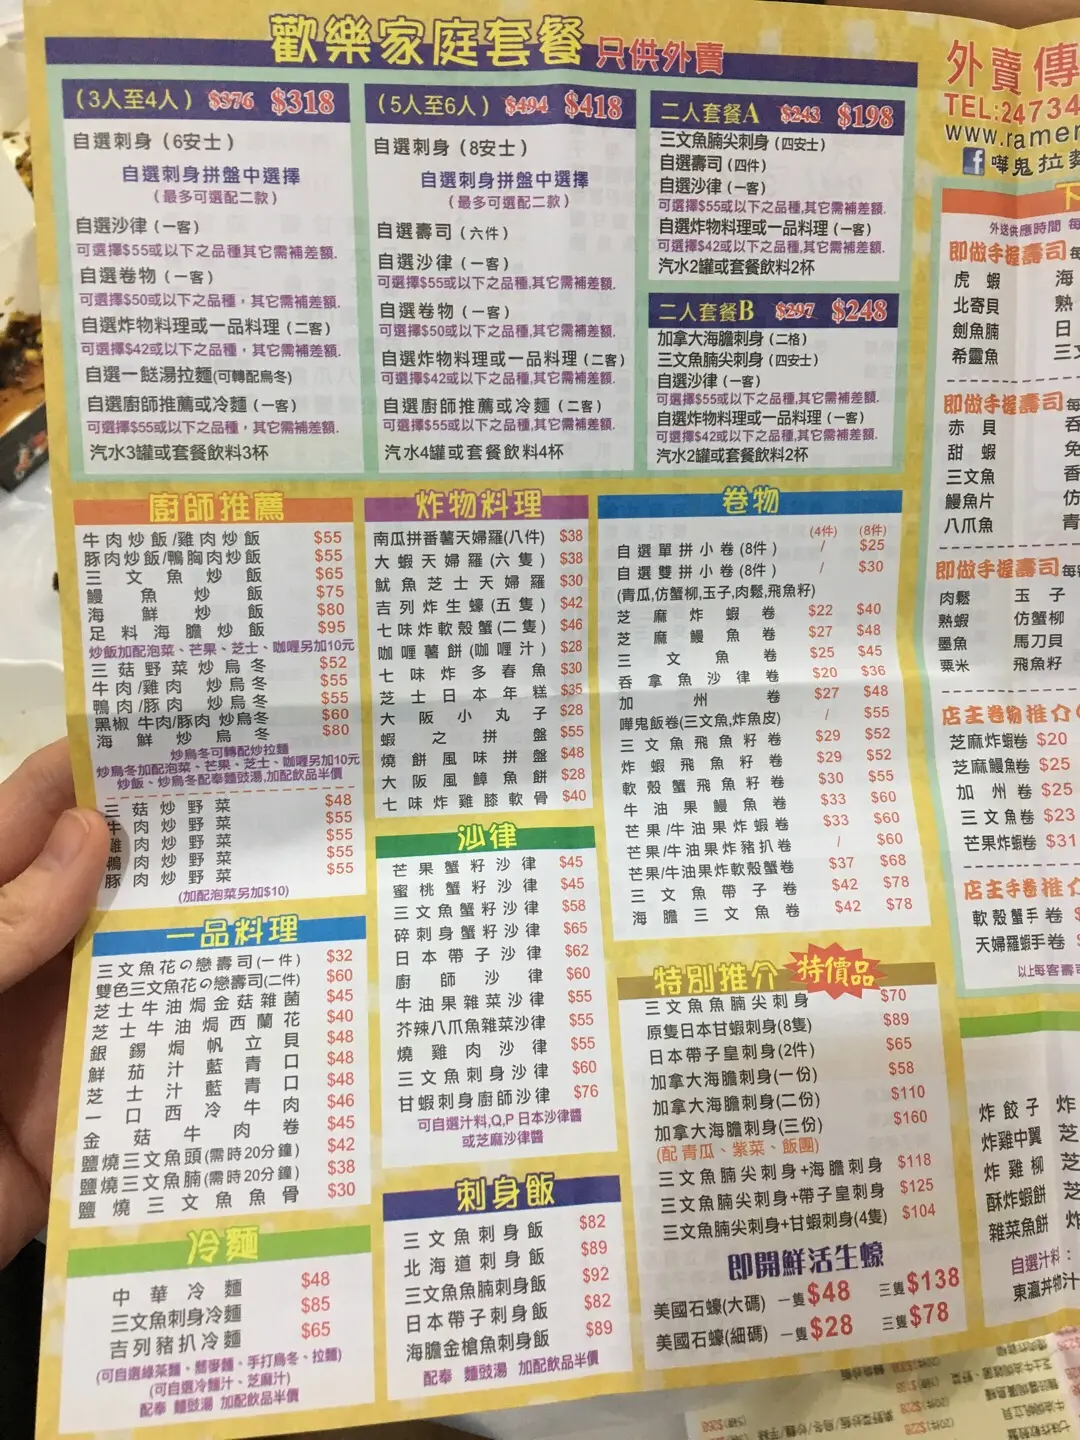 歡樂家庭套餐 只供外賣
(3人至4人) $376 $318
自選刺身(6安士)
自選刺身拼盤中選擇
(最多可選配二款)
自選沙律(一客)
可選擇$55或以下之品種其它需補差額.
自選卷物(一客)
可選擇$50或以下之品種,其它需補差額.
自選炸物料理或一品料理(二客)
可選擇$42或以下之品種,其它需補差額.
自選一餸湯拉麵(可轉配烏冬)
自選廚師推薦或冷麵(一客)
可選擇$55或以下之品種,其它需補差額.
汽水3罐或套餐飲料3杯
(5人至6人) $494 $418
自選刺身(8安士)
自選刺身拼盤中選擇
(最多可選配二款)
自選壽司(六件)
自選沙律(一客)
可選擇$55或以下之品種,其它需補差額.
自選卷物(一客)
可選擇$50或以下之品種,其它需補差額.
自選炸物料理或一品料理(二客)
可選擇$42或以下之品種,其它需補差額.
自選廚師推薦或冷麵(二客)
可選擇$55或以下之品種,其它需補差額.
汽水4罐或套餐飲料4杯
二人套餐A $243 $198
三文魚腩尖刺身(四安士)
自選壽司(四件)
自選沙律(一客)
可選擇$55或以下之品種,其它需補差額.
自選炸物料理或一品料理(一客)
可選擇$42或以下之品種,其它需補差額.
汽水2罐或套餐飲料2杯
二人套餐B $297 $248
加拿大海膽刺身(二格)
三文魚腩尖刺身(四安士)
自選沙律(一客)
可選擇$55或以下之品種,其它需補差額.
自選炸物料理或一品料理(一客)
可選擇$42或以下之品種,其它需補差額.
汽水2罐或套餐飲料2杯
廚師推薦
牛肉炒飯/雞肉炒飯 $55
豚肉炒飯/鴨胸肉炒飯 $55
三文魚炒飯 $65
鰻魚炒飯 $75
海鮮炒飯 $80
足料海膽炒飯 $95
炒飯加配泡菜、芒果、芝士、咖喱另加10元
三菇野菜炒烏冬 $52
牛肉/雞肉 炒烏冬 $55
鴨肉/豚肉 炒烏冬 $55
黑椒 牛肉/豚肉 炒烏冬 $60
海鮮炒烏冬 $80
炒烏冬可轉配炒拉麵
炒烏冬加配泡菜、芒果、芝士、咖喱另加10元
炒飯、炒烏冬配奉麵豉湯,加配飲品半價
三菇炒野菜 $48
牛肉炒野菜 $55
雞肉炒野菜 $55
鴨肉炒野菜 $55
豚肉炒野菜 $55
(加配泡菜另加$10)
一品料理
三文魚花の戀壽司(一件) $32
雙色三文魚花の戀壽司(二件) $60
芝士牛油焗金菇雜菌 $45
芝士牛油焗西蘭花 $40
銀錫焗帆立貝 $48
鮮茄汁藍青口 $48
芝士汁藍青口 $48
一口西冷牛肉 $46
金菇牛肉卷 $45
鹽燒三文魚頭(需時20分鐘) $42
鹽燒三文魚腩(需時20分鐘) $38
鹽燒三文魚魚骨 $30
冷麵
中華冷麵 $48
三文魚刺身冷麵 $85
吉列豬扒冷麵 $65
(可自選綠茶麵、蕎麥麵、手打烏冬、拉麵)
(可自選冷麵汁、芝麻汁)
配奉 麵豉湯 加配飲品半價
炸物料理
南瓜拼番薯天婦羅(八件) $38
大蝦天婦羅(六隻) $38
魷魚芝士天婦羅 $30
吉列炸生蠔(五隻) $42
七味炸軟殼蟹(二隻) $46
咖喱薯餅(咖喱汁) $28
七味炸多春魚 $30
芝士日本年糕 $35
大阪小丸子 $28
蝦之拼盤 $55
燒餅風味拼盤 $48
大阪風鱆魚餅 $28
七味炸雞膝軟骨 $40
沙律
芒果蟹籽沙律 $45
蜜桃蟹籽沙律 $45
三文魚蟹籽沙律 $58
碎刺身蟹籽沙律 $65
日本帶子沙律 $62
廚師沙律 $60
牛油果雜菜沙律 $55
芥辣八爪魚雜菜沙律 $55
燒雞肉沙律 $55
三文魚刺身沙律 $60
甘蝦刺身廚師沙律 $76
可自選汁料,Q.P日本沙律醬
或芝麻沙律醬
刺身飯
三文魚刺身飯 $82
北海道刺身飯 $89
三文魚魚腩刺身飯 $92
日本帶子刺身飯 $82
海膽金槍魚刺身飯 $89
配奉 麵豉湯 加配飲品半價
卷物
(4件) (8件)
自選單拼小卷(8件) / $25
自選雙拼小卷(8件) / $30
(青瓜,仿蟹柳,玉子,肉鬆,飛魚籽)
芝麻炸蝦卷 $22 $40
芝麻鰻魚卷 $27 $48
三文魚卷 $25 $45
吞拿魚沙律卷 $20 $36
加州卷 $27 $48
嘩鬼飯卷(三文魚,炸魚皮) / $55
三文魚飛魚籽卷 $29 $52
炸蝦飛魚籽卷 $29 $52
軟殼蟹飛魚籽卷 $30 $55
牛油果鰻魚卷 $33 $60
芒果/牛油果炸蝦卷 $33 $60
芒果/牛油果炸豬扒卷 / $60
芒果/牛油果炸軟殼蟹卷 $37 $68
三文魚帶子卷 $42 $78
海膽三文魚卷 $42 $78
特別推介 特價品
三文魚魚腩尖刺身 $70
原隻日本甘蝦刺身(8隻) $89
日本帶子皇刺身(2件) $65
加拿大海膽刺身(一份) $58
加拿大海膽刺身(二份) $110
加拿大海膽刺身(三份) $160
(配青瓜、紫菜、飯團)
三文魚腩尖刺身+海膽刺身 $118
三文魚腩尖刺身+帶子皇刺身 $125
三文魚腩尖刺身+甘蝦刺身(4隻) $104
即開鮮活生蠔
美國石蠔(大碼) 一隻$48 三隻$138
美國石蠔(細碼) 一隻$28 三隻$78
外賣傳
TEL:24734
www.ramen
嘩鬼拉麵
下
外送供應時間 每
即做手握壽司 每
虎蝦 海
北寄貝 熟
劍魚腩 日
希靈魚 三文
即做手握壽司 每
赤貝 吞
甜蝦
三文魚 香
鰻魚片 仿
八爪魚 青
即做手握壽司 每
肉鬆 玉子
熟蝦 仿蟹柳
墨魚 馬刀貝
粟米 飛魚籽
店主卷物推介
芝麻炸蝦卷 $20
芝麻鰻魚卷 $25
加州卷 $25
三文魚卷 $23
芒果炸蝦卷 $31
店主手卷推介
軟殼蟹手卷
天婦羅蝦手卷
以上每客壽司
炸餃子 炸
炸雞中翼 芝
炸雞柳 芝
酥炸蝦餅 芝
雜菜魚餅 炸
自選汁料:
東瀛丼物汁